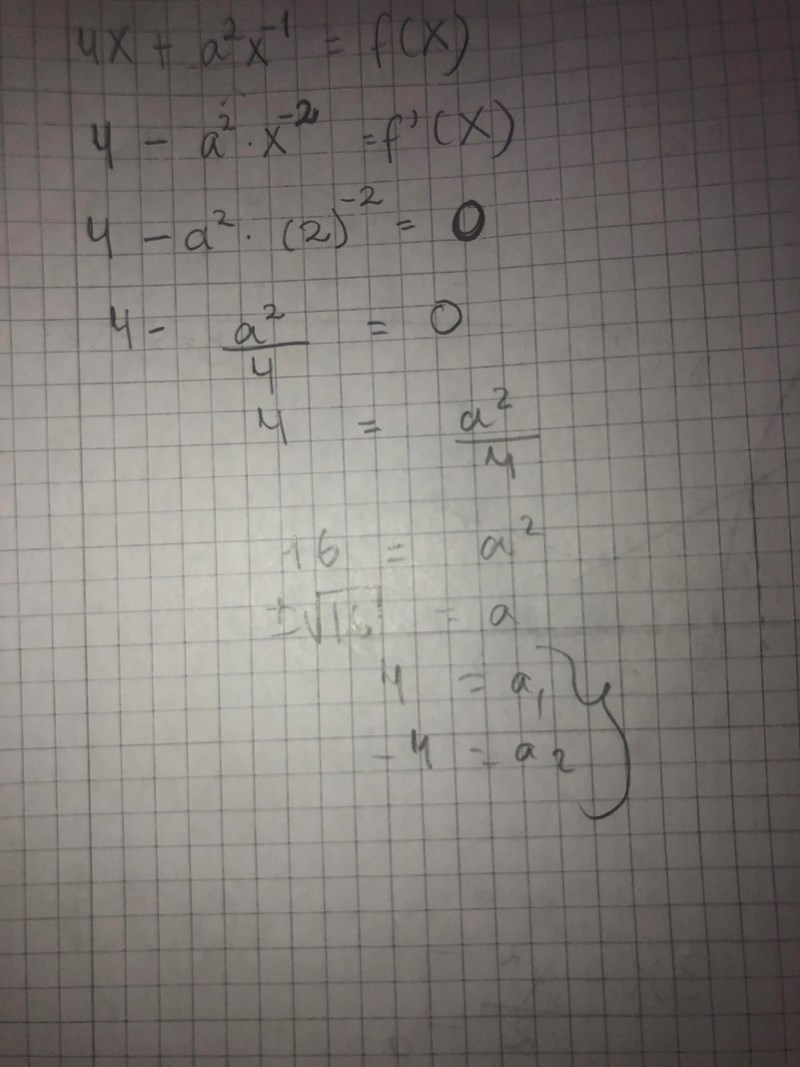 4x + a²x⁻¹ = f(x)
4 - a² · x⁻² = f'(x)
4 - a² · (2)⁻² = 0
4 - a²/4 = 0
4 = a²/4
16 = a²
±√16 = a
4 = a₁
-4 = a₂